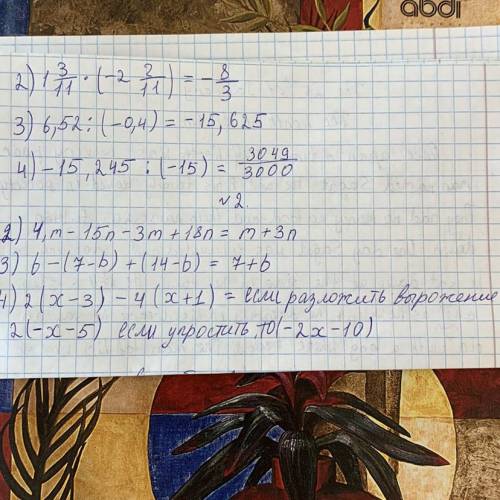 abdi
2) 1 3/11 · (-2 2/11) = -8/3
3) 6,52 : (-0,4) = -15,625
4) -15,245 : (-15) = 3049/3000
№2.
2) 4,m - 15n - 3m + 18n = m + 3n
3) b - (7-b) + (14-b) = 7+b
4) 2(x-3) - 4(x+1) = если разложить вырожение
2(-x-5) если упростить, то (-2x-10)